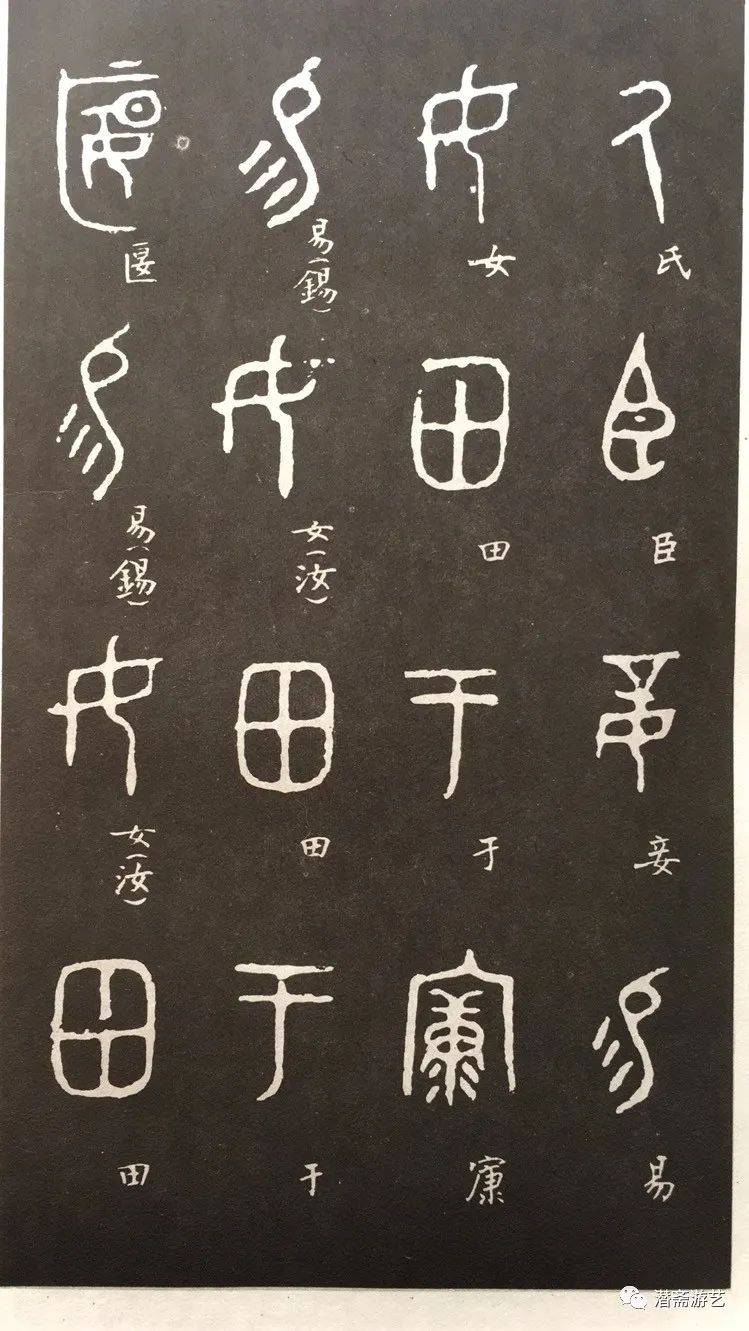 氏臣妾易
女田于㝩
易（錫）女（汝）田于
匽易（錫）女（汝）田
潜斋游艺